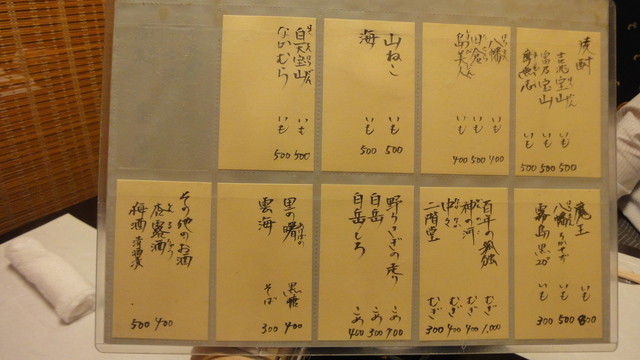 焼酎
吉兆宝山 いも 500
富乃宝山 いも 500
いも 500
八幡 いも 700
田倉 いも 500
島美人 いも 400
山ねこ いも 500
海 いも 500
白天宝山 いも 500
なかむら いも 500
魔王 いも 800
八幡ろかせず いも 500
霧島 黒 20° いも 300
百年の孤独 むぎ 1,000
神の河 むぎ 400
中々 むぎ 400
二階堂 むぎ 300
野うさぎの走り こめ 700
白岳 こめ 300
白岳しろ こめ 400
里の曙 黒糖 400
雲海 そば 300
その他のお酒
杏露酒 400
梅酒 500